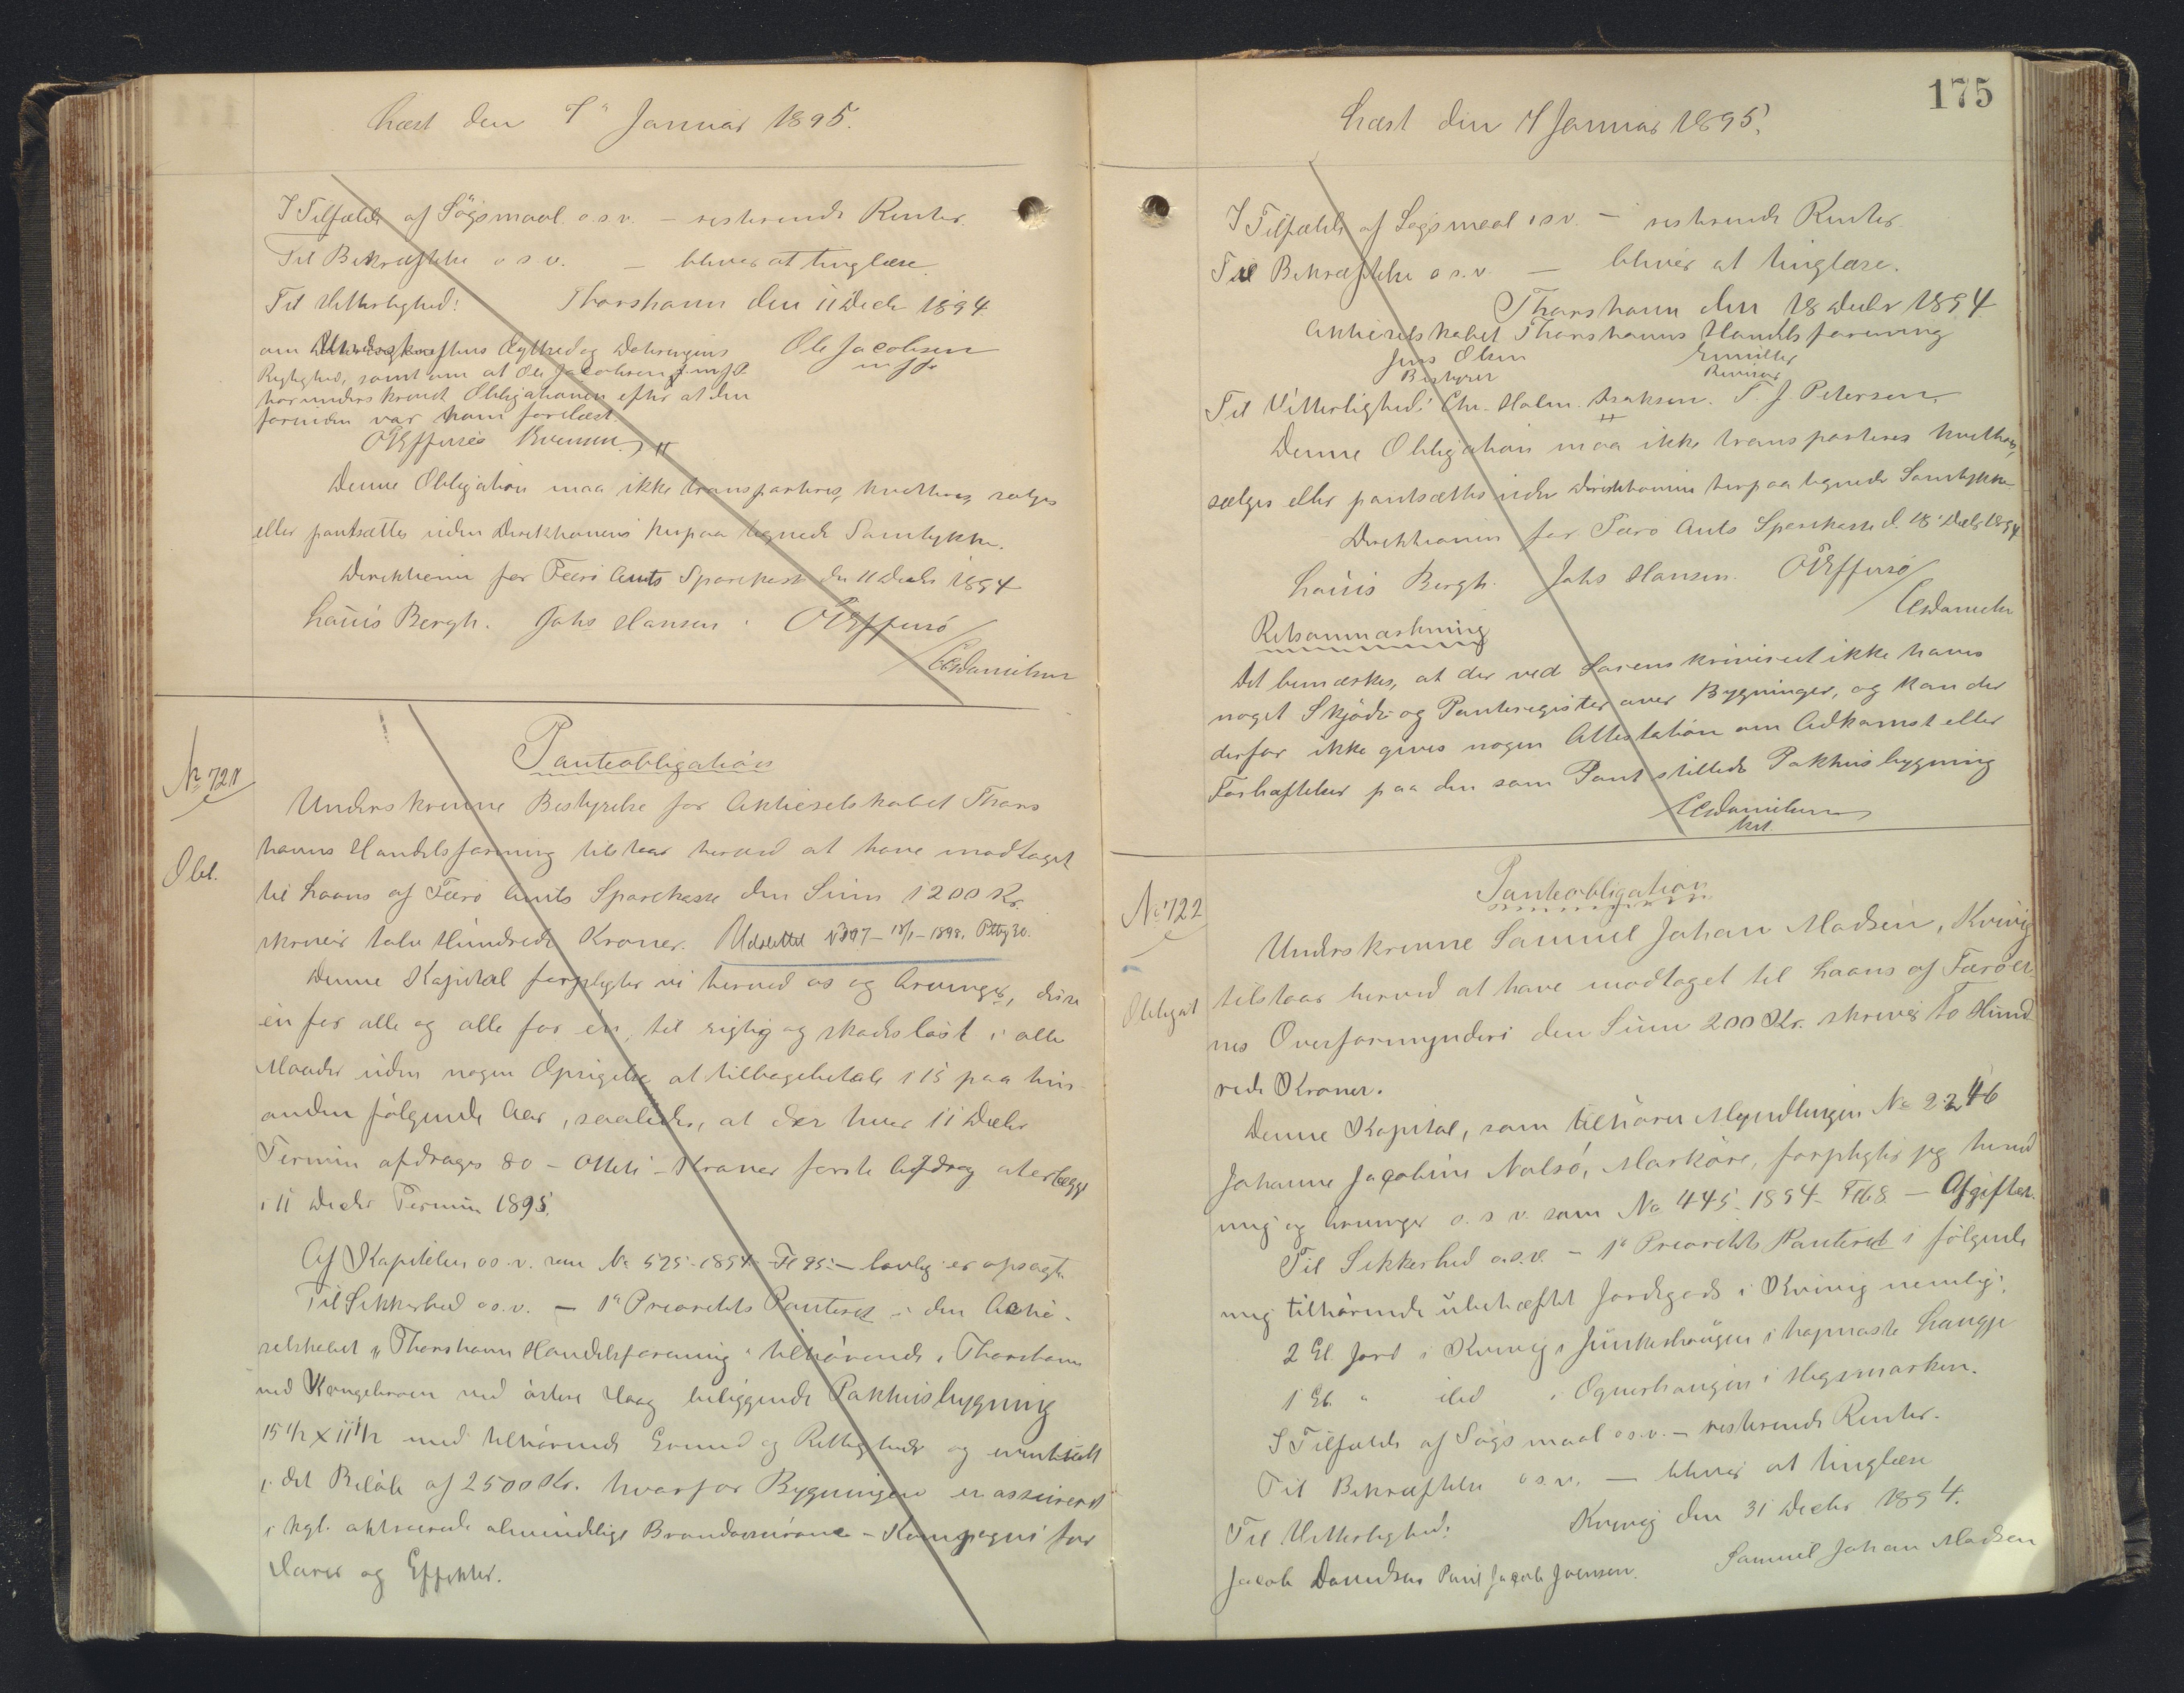 Læst den 7 Januar 1895.
I Tilfælde af Sögsmaal o.s.v. — resterende Renter.
Til Bekræftelse o s v. — bliver at tinglæse.
Til Vitterlighed: Thorshavn den 11 Decbr 1894.
om Underskriftens Ægthed og Dateringens Ole Jacobsen
Rigtighed, samt om at Ole Jacobsen m.f.P. m f P.
har underskrevet Obligationen efter at den
forinden var ham forelæst.
O Effersöe Evensen
Denne Obligation maa ikke transporteres, kvitteres, sælges
eller pantsættes uden Direktionens herpaa tegnede Samtykke.
Direktionen for Færö Amts Sparekasse den 11 Decbr 1894
Louis Bergh. Johs Hansen. O Effersö
/ C Danielsen
No 721
Panteobligation
Obl.
Underskrevne Bestyrelse for Aktieselskabet Thors
havns Handelsforening tilstaar herved at have modtaget
til Laans af Færö Amts Sparekasse den Sum 1200 Kr.
skrevet tolv Hundrede Kroner. Udslettet N 397 - 18/1 - 1898.
Denne Kapital forpligter vi herved os og Arvinger, disse
en for alle og alle for en, til rigtig og skadeslöst i alle
Maader uden nogen Opsigelse at tilbagebetale i 15 paa hin-
anden fölgende Aar, saaledes, at der hver 11 Decbr
Termin afdrages 80 - Otteti - Kroner förste Afdrag at erlægge
i 11 Decbr Termin 1895.
Af Kapitalen o s. v. som No 525-1894 - Fl 95 — lovlig er opsagt.
Til Sikkerhed o s. v. — 1ste Prioritets Panteret i den Aktie-
selskabet "Thorshavn Handelsforening" tilhörende i Thorshavn
ved Kongebroen ved östre Vaag beliggende Pakhusbygning
15 1/2 X 11 1/2 med tilhörende Grund og Rettigheder og eventuelt
i det Belöb af 2500 Kr. hvorfor Bygningen er assureret
i kgl. oktroierede almindelige Brandassurance - Kompagni for
Varer og Effekter.
175
Læst den 7 Januar 1895.
I Tilfælde af Sögsmaal o s v. — resterende Renter.
Til Bekræftelse o s. v. — bliver at tinglæse.
Thorshavn den 18 Decbr 1894
Aktieselskabet Thorshavns Handelsforening
Jens Olsen
Bestyrer Revisor
Til Vitterlighed: Chr. Holm Isaksen. T. J. Petersen.
Denne Obligation maa ikke transporteres kvitteres,
sælges eller pantsættes uden Direktionens herpaa tegnede Samtykke
Direktionen for Færö Amts Sparekasse d. 18 Decbr 1894
Louis Bergh. Johs Hansen. O Effersö
/ C Danielsen
Retsanmærkning
Det bemærkes, at der ved Sorenskriveriet ikke haves
noget Skjöde- og Panteregister over Bygninger, og kan der
derfor ikke gives nogen Attestation om Adkomst eller
Forhæftelser paa den som Pant stillede Pakhusbygning
C Danielsen
kst.
No 722
Panteobligation
Obligat
Underskrevne Samuel Johan Madsen, Kvivig
tilstaar herved at have modtaget til Laans af Færöer-
nes Overformynderi den Sum 200 Kr. skrives to Hund
rede Kroner.
Denne Kapital, som tilhörer Myndlingen No 2246
Johanne Jacobine Nolsö, Marköre, forpligter jeg herved
mig og Arvinger o. s v. som No 445 - 1894 - Fl 68 — Afgifter.
Til Sikkerhed o.s.v. — 1ste Prioritets Panteret i fölgende
mig tilhörende ubehæftet Jordegods i Kvivig nemlig:
2 Gl. Jord i Kvivig i Junkershaugen i hapnaste Laugje
1 Gl. " ibd i Ognerhaugen i Høgsmarken.
I Tilfælde af Sögsmaal o s. v. — resterende Renter.
Til Bekræftelse o s. v. — bliver at tinglæse
Til Vitterlighed: Kvivig den 31 Decbr 1894.
Jacob Danielsen Poul Jacob Joensen. Samuel Johan Madsen